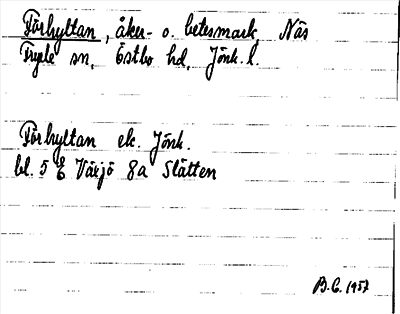 Förhyltan, åker- o. betesmark, Näs
Fryele sn, Östbo hd, Jönk. l.
Förhyltan ek. Jönk.
bl. 5 E Växjö 8a Slätten
B.G. 1957